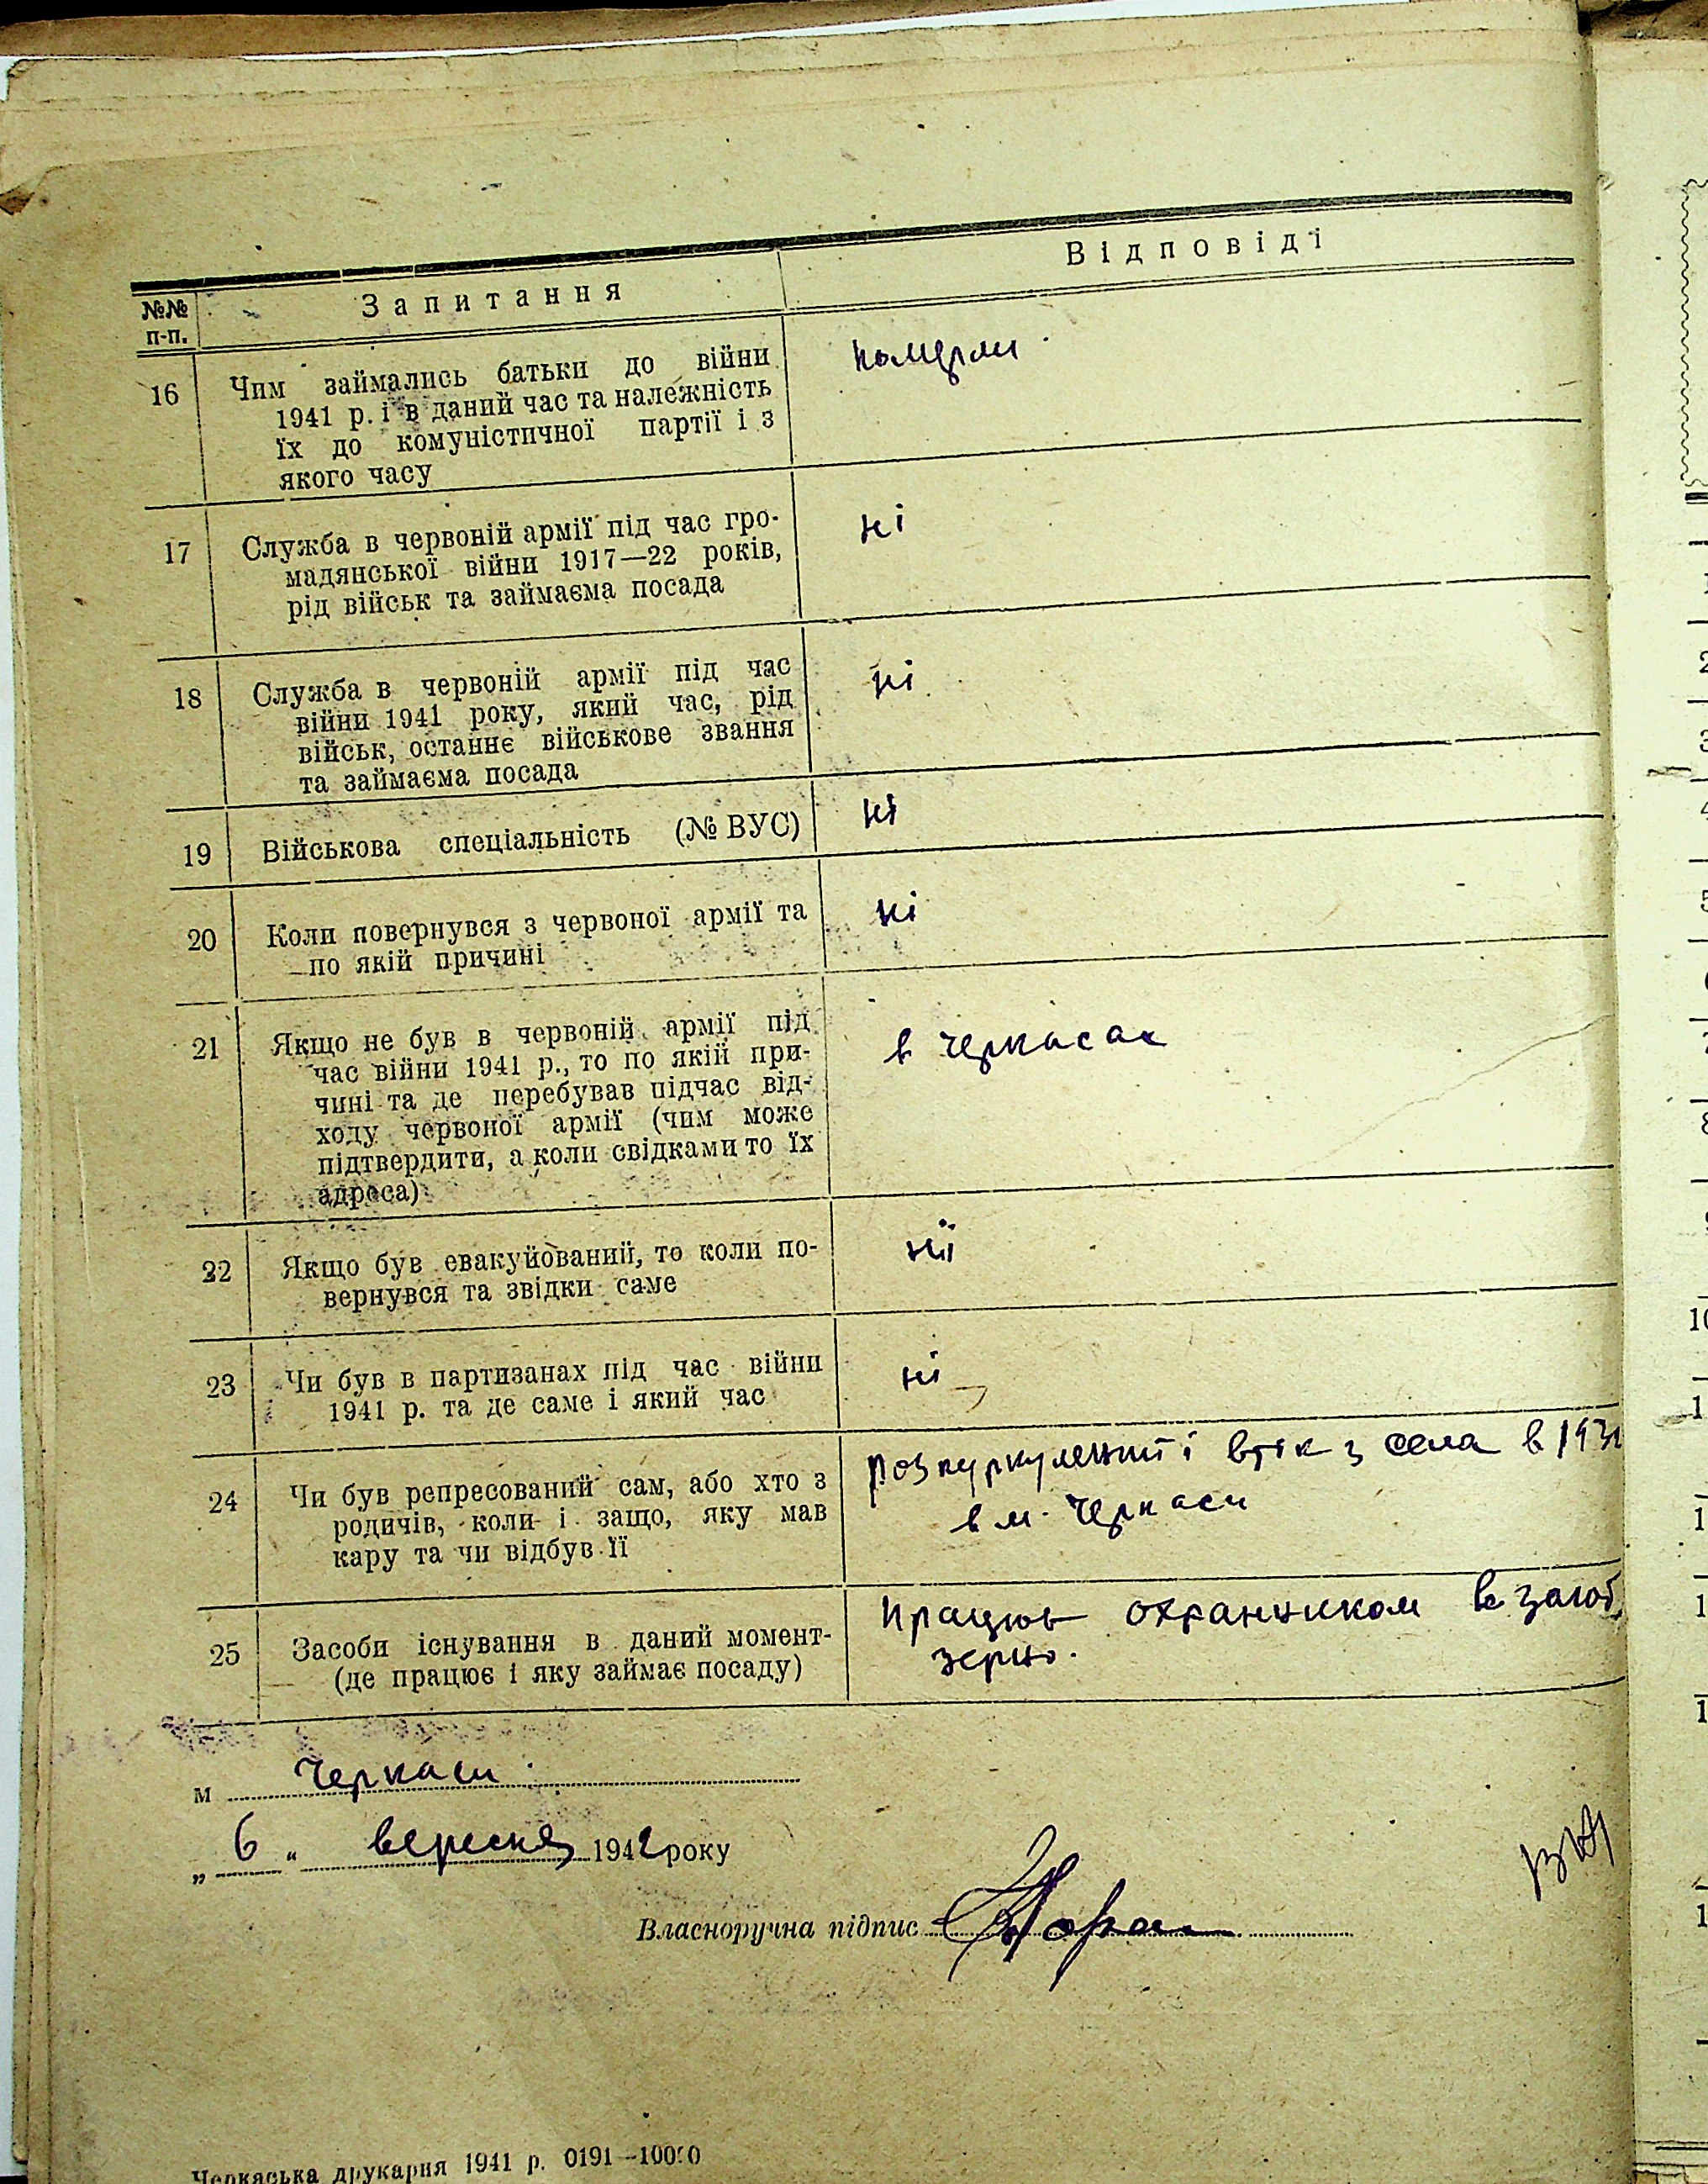 №№ п-п.
Запитання
Відповіді
16
Чим займались батьки до війни
1941 р. і в даний час та належність
їх до комуністичної партії і з
якого часу
померли
17
Служба в червоній армії під час гро-
мадянської війни 1917—22 років,
рід військ та займаєма посада
ні
18
Служба в червоній армії під час
війни 1941 року, який час, рід
військ, останнє військове звання
та займаєма посада
ні
19
Військова спеціальність (№ ВУС)
ні
20
Коли повернувся з червоної армії та
по якій причині
ні
21
Якщо не був в червоній армії під
час війни 1941 р., то по якій при-
чині та де перебував підчас від-
ходу червоної армії (чим може
підтвердити, а коли свідками то їх
адреса)
в Черкасах
22
Якщо був евакуйований, то коли по-
вернувся та звідки саме
ні
23
Чи був в партизанах під час війни
1941 р. та де саме і який час
ні
24
Чи був репресований сам, або хто з
родичів, коли і защо, яку мав
кару та чи відбув її
розкуркулений і втік з села в 1931
в м. Черкаси
25
Засоби існування в даний момент-
(де працює і яку займає посаду)
Працюю охранником в загот
зерно.
м Черкаси
„ 6 “ вересня 1942 року
Власноручна підпис
Черкаська друкарня 1941 р. 0191—10000